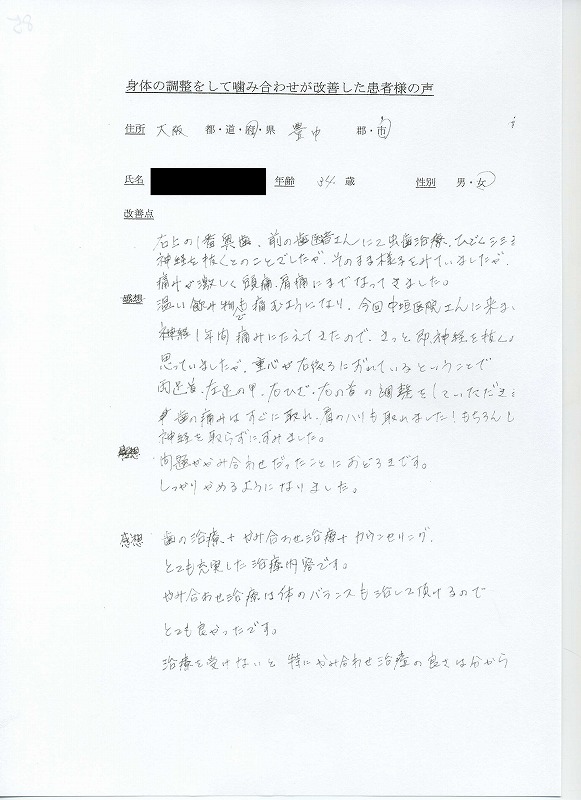 身体の調整をして噛み合わせが改善した患者様の声
住所 大阪 都・道・府・県 豊中 郡・市
氏名 年齢 34 歳 性別 男・女
改善点
右上の1番奥歯、前の歯医者さんにて虫歯治療、ひどく
神経を抜くとのことでしたが、そのまま様子をみていましたが、
痛みが激しく頭痛、肩痛にまでなってきました。
感想 温い飲み物でも痛むようになり、今回中垣医院さんに来ま
1年間痛みにたえてきたので、きっと即神経を抜く
思っていましたが、重心が右後ろにずれているということで
両足首、左足の甲、右ひざ、右の首の調整をしていただき
歯の痛みはすぐに取れ、肩のハリも取れました!もちろん
神経を取らずにすみました。
感想 問題がかみ合わせだったことにおどろきです。
しっかりかめるようになりました。
感想 歯の治療+かみ合わせ治療+カウンセリング、
とても充実した治療内容です。
かみ合わせ治療は体のバランスも治して頂けるので
とても良かったです。
治療を受けないと特にかみ合わせ治療の良さは分から